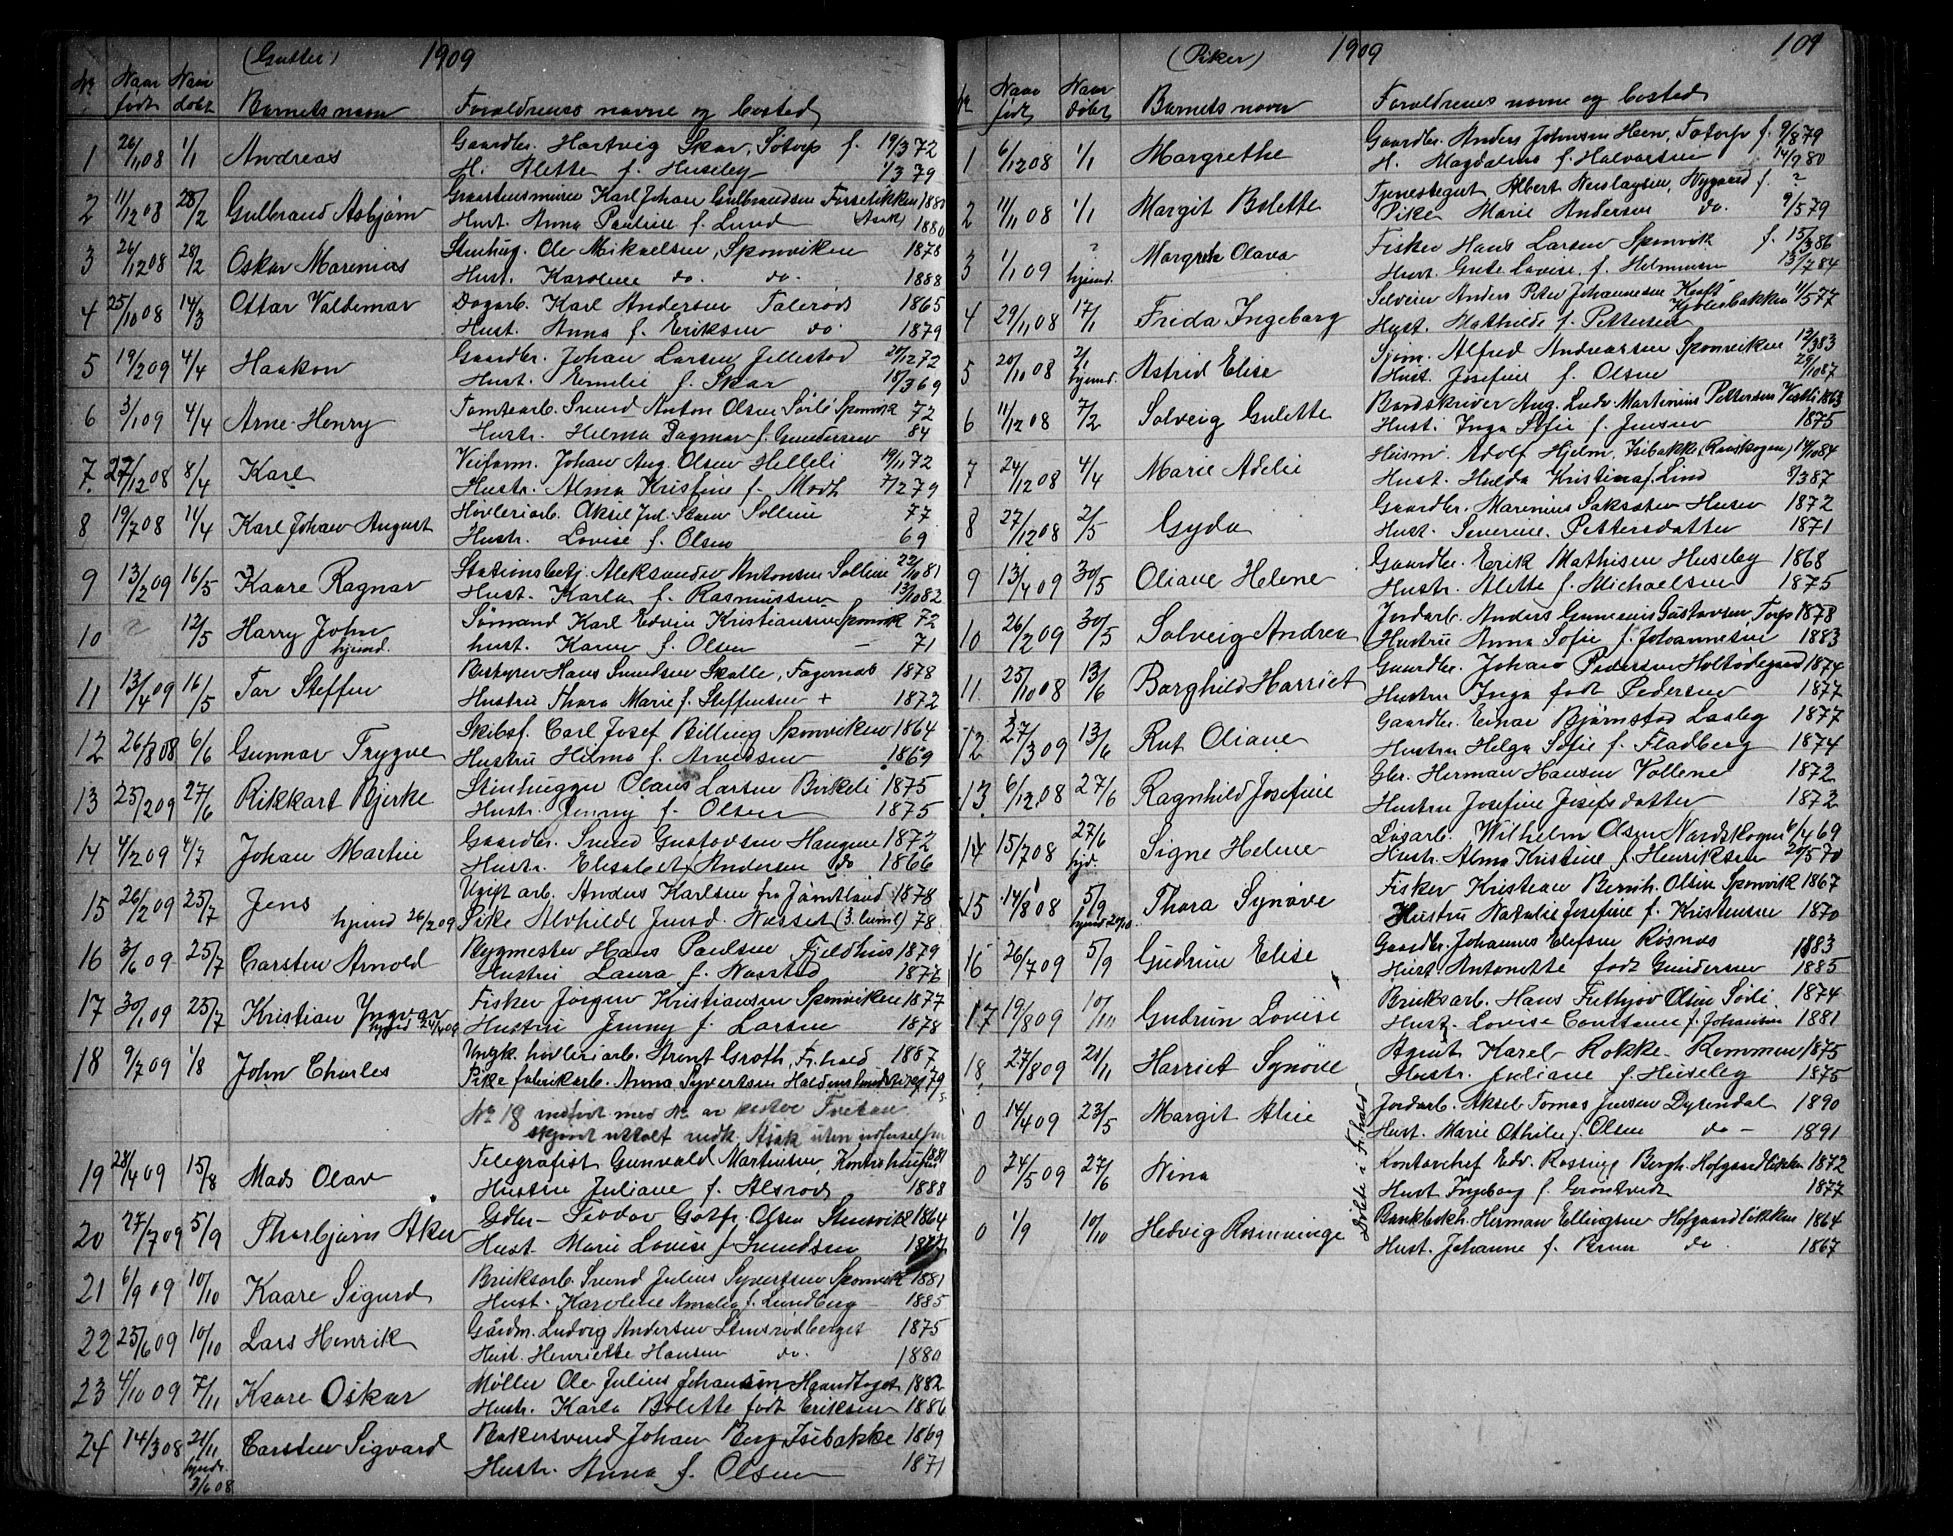 (Gutter) 1909
Nr Naar født Naar døbt Barnets navn Foraldrenes navne og bosted
1 26/11 08 1/1 Andreas Gaardbr. Hartvig Skar, Sotorp f. 19/3 72
H. Alette f. Huseby 1/3 79
2 11/12 08 28/2 Gulbrand Asbjørn Karl Johan Gulbrandsen 1880
Hust. Anna Pauline f. Lund (Asak) 1880
3 26/12 08 28/2 Oskar Marenius Stenhug. Ole Mikaelsen, Sponviken 1878
Hust. Karoline do. do. 1888
4 25/10 08 14/3 Ottar Valdemar Dagarb. Karl Andersen Folerød 1865
Hust. Anna f. Eriksen do. 1879
5 19/2 09 4/4 Haakon Gaardbr. Johan Larsen Jellestad 12 72
Hust. Emilie f. Skar 18/3 69
6 3/1 09 4/4 Arne Henry Tomtearb. Svend Anton Olsen Sørli Sponvik 72
Hustr. Helma Dagmar f. Gundersen 84
7 27/12 08 8/4 Karl Veiform. Johan Aug. Olsen Helleli 19/11 72
Hustr. Alma Kristine f. Moth 12 79
8 19/7 08 11/4 Karl Johan August Høvleriarb. Aksel Sollie 77
Hustr. Lovise f. Olsen 69
9 13/2 09 16/5 Kaare Ragnar Stationsbetj. Aleksander Antonsen Sollie 22/10 81
Hust. Karla f. Rasmussen 13/10 82
10 ? 12/5 Harry John hjemd. Sømand Karl Edvin Kristiansen Sponvik 72
hust. Karen f. Olsen — 71
11 13/4 09 16/5 Tor Steffen Bestyrer Hans Svendsen Skolle, Fagernæs 1878
Hustru Thora Marie f. Steffensen + 1872
12 26/8 08 6/6 Gunnar Trygve Skibsf. Carl Josef Billing Sponviken 1864
Hustru Helma f. Arvessen 1869
13 25/2 09 27/6 Rikkart Bjerke Stenhugger Olaus Larsen Birkeli 1875
Hustr. Jenny f. Olsen 1875
14 4/2 09 4/7 Johan Martin Gaardbr. Svend Gustavsen Haugene 1872
Hustr. Elisabet Andersen do 1866
15 26/2 09 25/7 Jens hjemd 26/2 09 Ugift arb. Anders Karlsen fra Jämtland 1878
Pike Alvhilde Jensd. Næsset (3. ) 78
16 3/6 09 25/7 Carsten Arnold Bygmester Hans Paulsen Fjeldhus 1879
Hustru Laura f. Næstad 1877
17 30/1 09 25/7 Kristian Yngvar Fisker Jørgen Kristiansen Sponviken 1877
Hustru Jenny f. Larsen 1878
18 9/7 09 1/8 John Charles Ungk. høvleriarb. Groth, Fr.hald 1887
Pike fabrikarb. Anna Syvertsen 79
No 18
19 28/4 09 15/8 Mads Olav Telegrafist Gunvald Martinsen 1881
Hustru Juliane f. Alsrød 1888
20 27/7 09 5/9 Thorbjørn Aker Gdbr. Teodor Gotfr. Olsen Stensvik 1864
Hust. Marie Lovise f. Svendsen
21 6/9 09 10/10 Kaare Sigurd Bruksarb. Svend Julius Syvertsen Sponvik 1881
Hust. Karoline Amalie f. Lundberg 1885
22 25/6 09 10/10 Lars Henrik Gårdm. Ludvig Andersen Stensrødberget 1875
Hust. Henriette Hansen do. 1880
23 4/10 09 7/11 Kaare Oskar Møller Ole Julius Johansen 1882
Hustr. Karla Bolette født Eriksen 1886
24 14/3 08 21/11 hjemd. 3/6 08 Carsten Sigvard Bakersvend Johan Berg Isebakke 1869
Hustr. Anna f. Olsen 1871
(Piker) 1909 109
Nr Naar født Naar døbt Barnets navn Foraldrenes navne og bosted
1 6/12 08 1/1 Margrethe Gaardbr. Anders Johnsen Hven, Sotorp f. 9/8 79
H. Magdalene f. Halvorsen 14/9 80
2 11/11 08 1/1 Margit Bolette Tjenestegut Albert Nygaard f. ?
Pike Marie Andersen do. 9/5 79
3 1/1 09 ? hjemd. Margreth Olava Fisker Hans Larsen Sponvik f. 15/3 86
Hust. Gute Lovise f. Helmersen 13/7 84
4 29/11 08 17/1 Frida Ingeborg Anders Peter Johannesen 11/5 77
Hust. Mathilde f. Pettersen
5 20/10 08 2/1 hjemd. Astrid Elise Sjøm. Alfred Andreassen Sponviken 12/3 83
Hust. Josefine f. Olsen 29/10 87
6 11/12 08 7/2 Solveig Gulette Aug. Ludv. Martinius Pettersen Vestli 1863
Hust. Inga Sofie f. Jensen 1875
7 24/12 08 4/4 Marie Adelie Husm. Adolf Hjelm, Isebakke 14/10 84
Hust. Hulda Kristina f. Lind 8/3 87
8 27/12 08 2/5 Gyda Gaardbr. Marinius Husen 1872
Hust. Severine Pettersdatter 1871
9 13/4 09 30/5 Oliane Helene Gaardbr. Erik Mathisen Huseby 1868
Hustr. Alette f. Michaelsen 1875
10 26/2 09 30/5 Solveig Andrea Jordarb. Anders Gustavsen, Torp 1878
Hustru Anna Sofie f. Johannesen 1883
11 25/10 08 13/6 Borghild Harriet Gaardbr. Johan Pedersen Holtødegaard 1874
Hustru Inga født Pedersen 1877
12 27/3 09 13/6 Rut Oliane Gaardbr. Einar Bjørnstad Laaby 1877
Hustru Helga Sofie f. Fladberg 1874
13 6/12 08 27/6 Ragnhild Josefine Gbr. Herman Hansen Vollene 1872
Hustru Josefine Josefsdatter 1872
14 15/7 08 27/6 hjd. Signe Helene Løsarb. Wilhelm Olsen Nordskogen 6/4 69
Hustr. Alma Kristine f. Henriksen 20/5 70
15 14/8 08 5/9 Thora Synøve Fisker Kristian Bernh. Olsen Sponvik 1867
Hustru Natalie Josefine f. Kristensen 1870
16 26/7 09 5/9 Gudrun Elise Gaardbr. Johannes Elefsen Røsnæs 1883
Hust. Antonette født Gundersen 1885
17 19/8 09 10/10 Gudrun Lovise Bruksarb. Hans Frithjov Olsen Sørli 1874
Hust. Lovise Constance f. Johansen 1881
18 27/8 09 21/11 Harriet Synøve Agent Karel Rokke - Remmen 1875
Hustr. Juliane f. Huseby 1875
0 14/4 09 23/5 Margit Alice Jordarb. Aksel Tomas Jensen Dyrendal 1890
Hust. Marie Othilie f. Olsen do — 1891
0 24/5 09 27/6 Nina Kontorchef Edv. Rossing Bergh. Hofgaardløkken 1872
Hust. Ingeborg f. Grøntvedt 1877
0 1/9 10/10 Hedvig Rosenvinge Bankbokh. Herman Ellingsen Hofgaardløkken 1864
Hust. Johanne f. Brun do. 1867
Døbte i Fr.hald